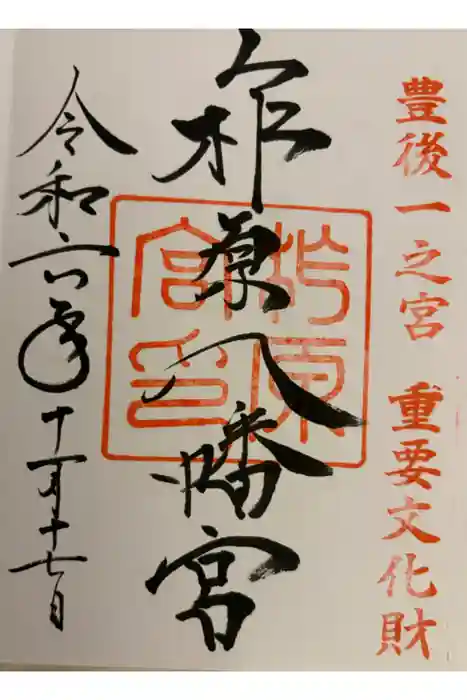 豊後一之宮 重要文化財
柞原八幡宮
柞原
宮印
令和六年十一月十七日